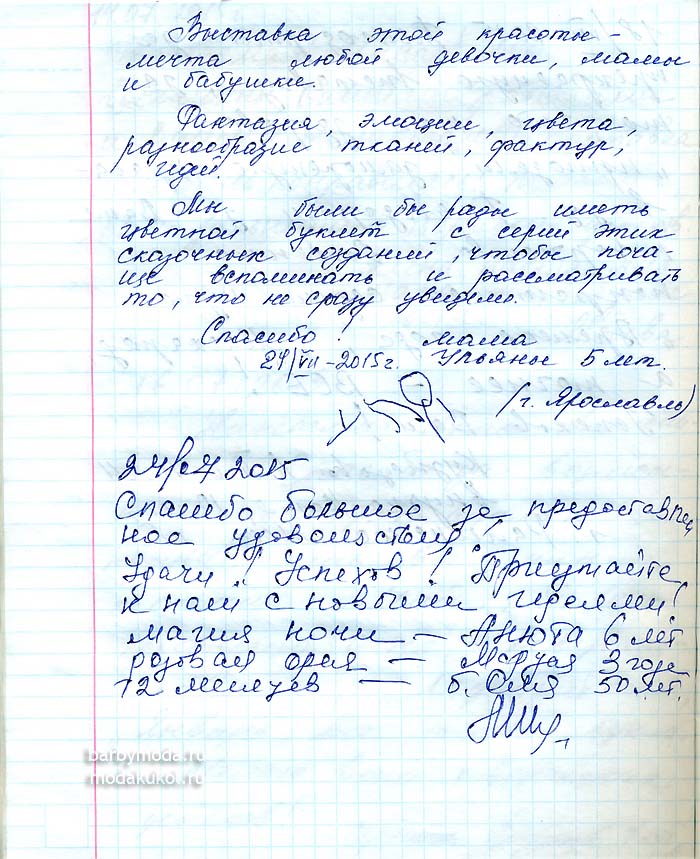 Выставка этой красоты -
мечта любой девочки, мамы
и бабушки.
Фантазия, эмоции, цвета,
разнообразие тканей, фактур,
идей.
Мы были бы рады иметь
цветной буклет с серий этих
сказочных созданий, чтобы поча-
ще вспоминать и рассматривать
то, что не сразу увидели.
Спасибо! мама
24/VII-2015г. Ульяны 5 лет.
(г. Ярославль)
24/07 2015
Спасибо большое за предоставлен
ное удовольствие!
Удачи! Успехов! Приезжайте
к нам с новыми идеями!
магия ночи — Анюта 6 лет
розовая фея — Маруся 3 года
12 месяцев — б. Оля 50 лет.
barbymoda.ru
modakukol.ru